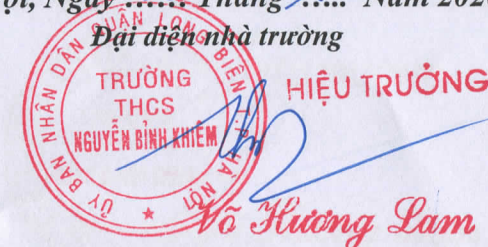 Ngày ...... Tháng ..... Năm 202
Đại diện nhà trường
ỦY BAN NHÂN DÂN QUẬN LONG BIÊN TP HÀ NỘI
TRƯỜNG
THCS
NGUYỄN BỈNH KHIÊM
HIỆU TRƯỞNG
Võ Hương Lam